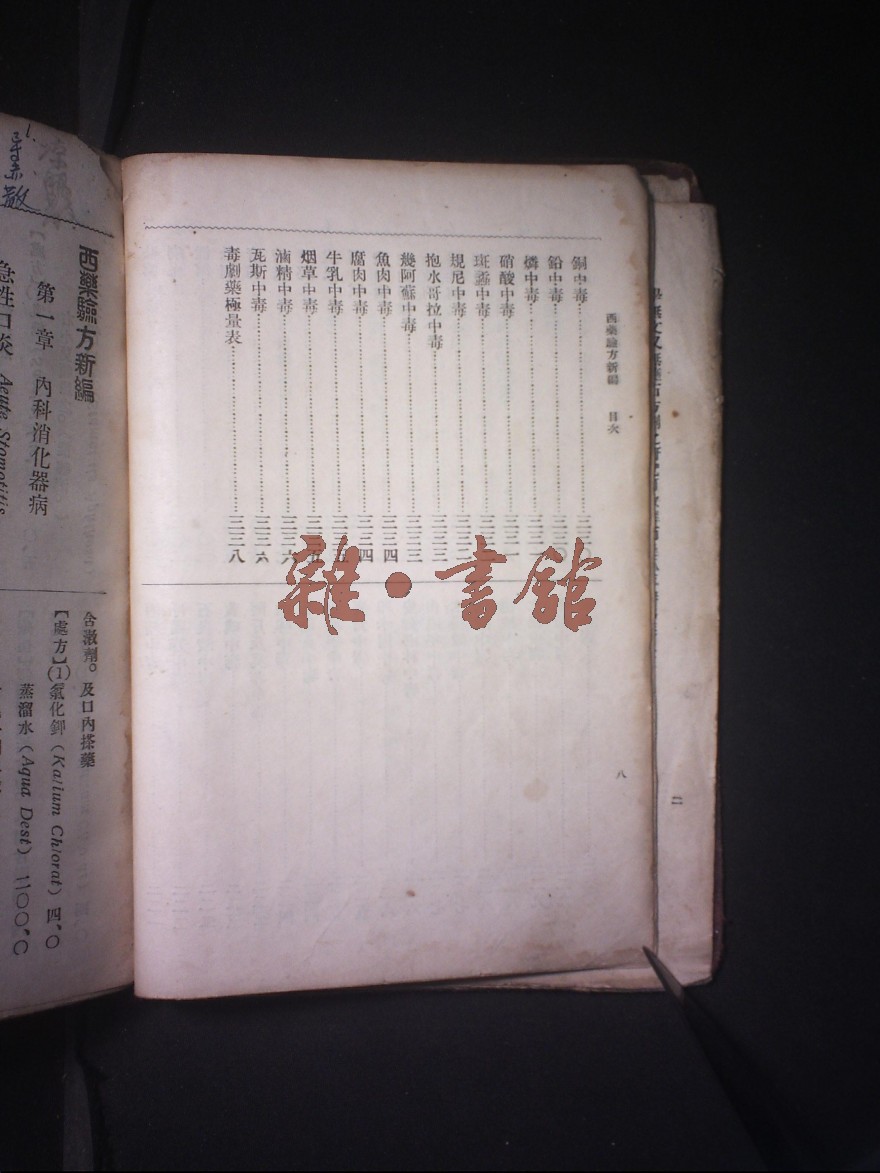 西藥驗方新編 目次
銅中毒
鉛中毒
燐中毒
硝酸中毒
斑蝥中毒
規尼中毒
抱水哥拉中毒
幾阿蘇中毒
魚肉中毒
腐肉中毒
牛乳中毒
烟草中毒
滷精中毒
瓦斯中毒
毒劇藥極量表……二三八
八
雜·書館
二
西藥驗方新編
第一章 內科消化器病
急性口炎 Acute Stomotitis
含漱劑。及口內搽藥
【處方】(1)氯化鉀(Kalium Chlorat)四.〇
蒸溜水(Aqua Dest)